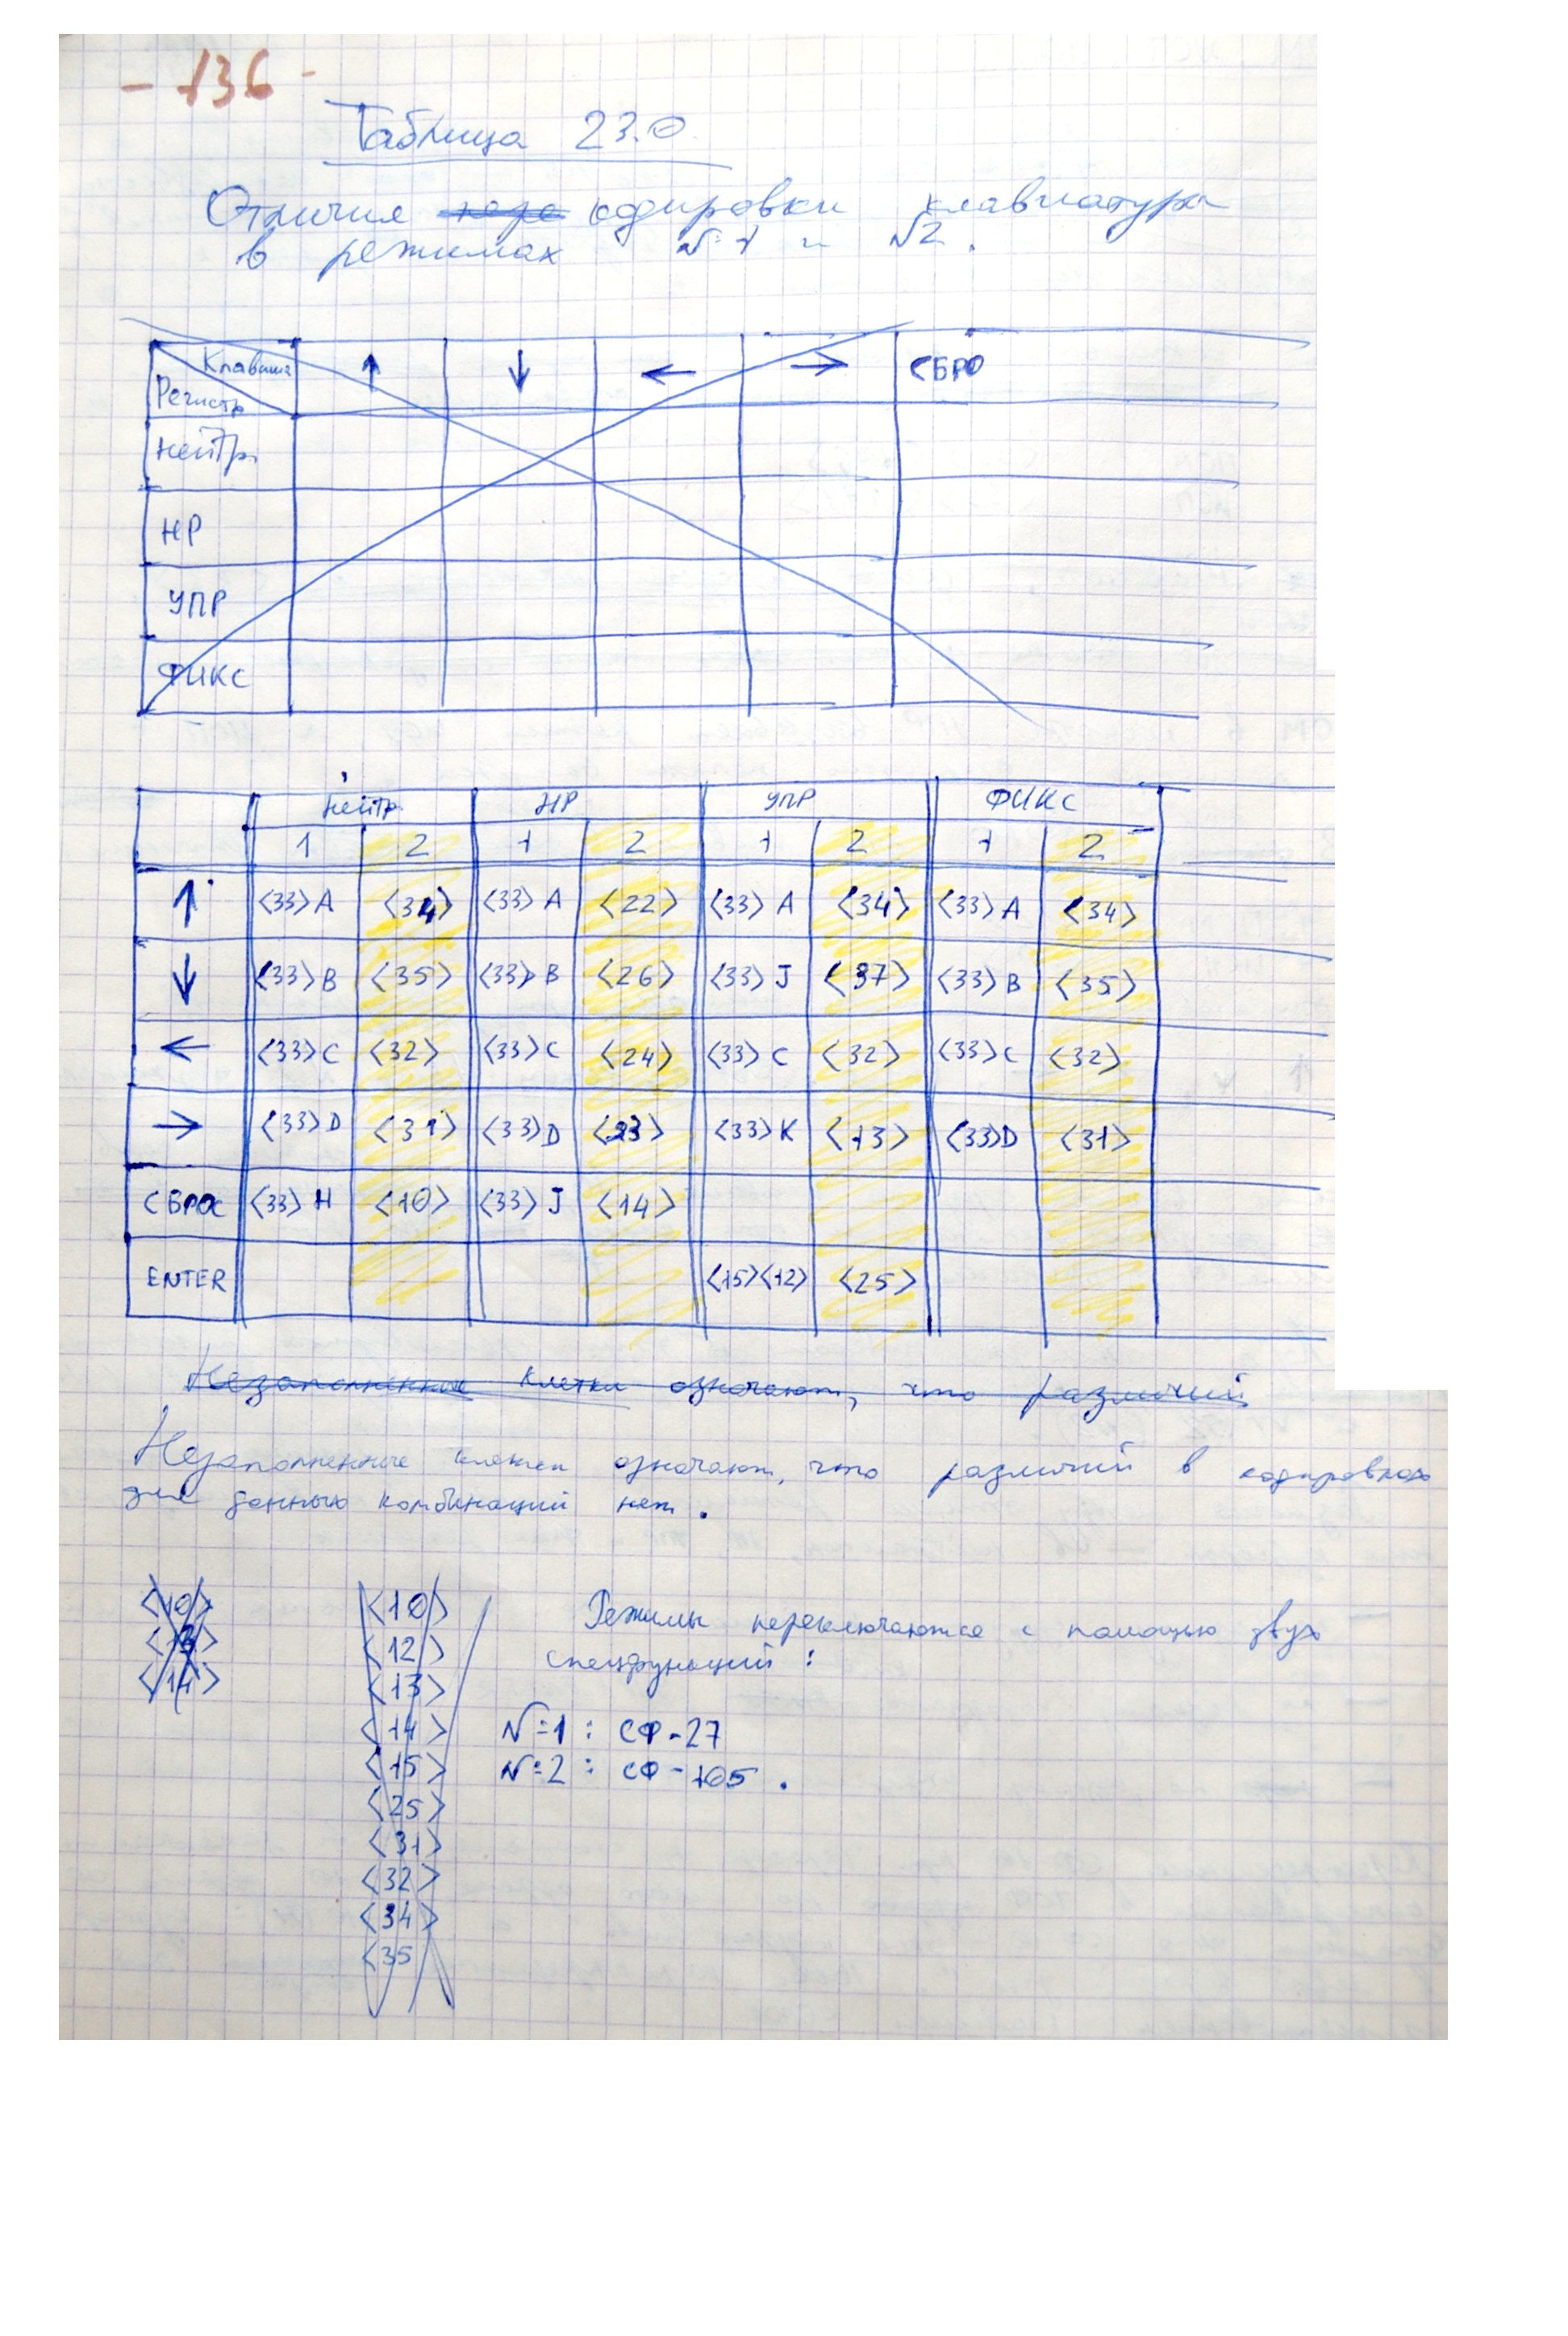 - 136 -
Таблица 23.0
Отличия кодировки клавиатуры
в режимах №1 и №2.
Клавиша ↑ ↓ ← → СБРО
Регистр
Нейтр.
НР
УПР
ФИКС
Нейтр. НР УПР ФИКС
1 2 1 2 1 2 1 2
↑ <33>A <34> <33>A <22> <33>A <34> <33>A <34>
↓ <33>B <35> <33>B <26> <33>J <37> <33>B <35>
← <33>C <32> <33>C <24> <33>C <32> <33>C <32>
→ <33>D <31> <33>D <23> <33>K <13> <33>D <31>
СБРОС <33>H <10> <33>J <14>
ENTER <15><12> <25>
Незаполненные клетки означают, что различий
Незаполненные клетки означают, что различий в кодировках
для данных комбинаций нет.
<10>
<13>
<14>
<10>
<12>
<13>
<14>
<15>
<25>
<31>
<32>
<34>
<35
Режимы переключаются с помощью двух
спецфункций:
№1: СФ-27
№2: СФ-105.